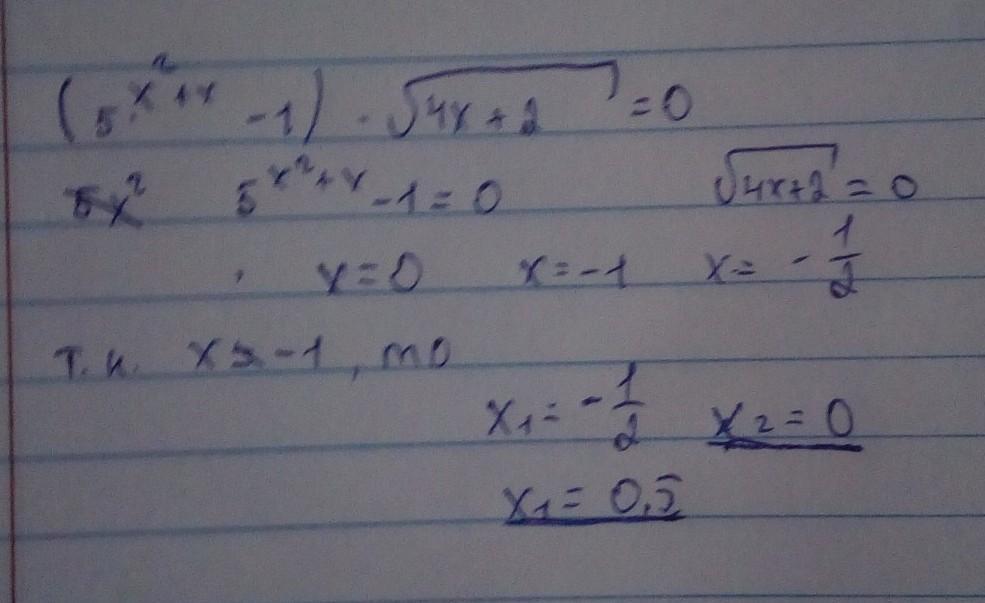 (5^{x^2+x} -1) · √(4x+2) = 0
5^{x^2+x} -1 = 0 √(4x+2) = 0
x=0 x=-1 x= -1/2
т.к. x > -1, то
x₁ = -1/2 x₂ = 0
x₁ = 0,5